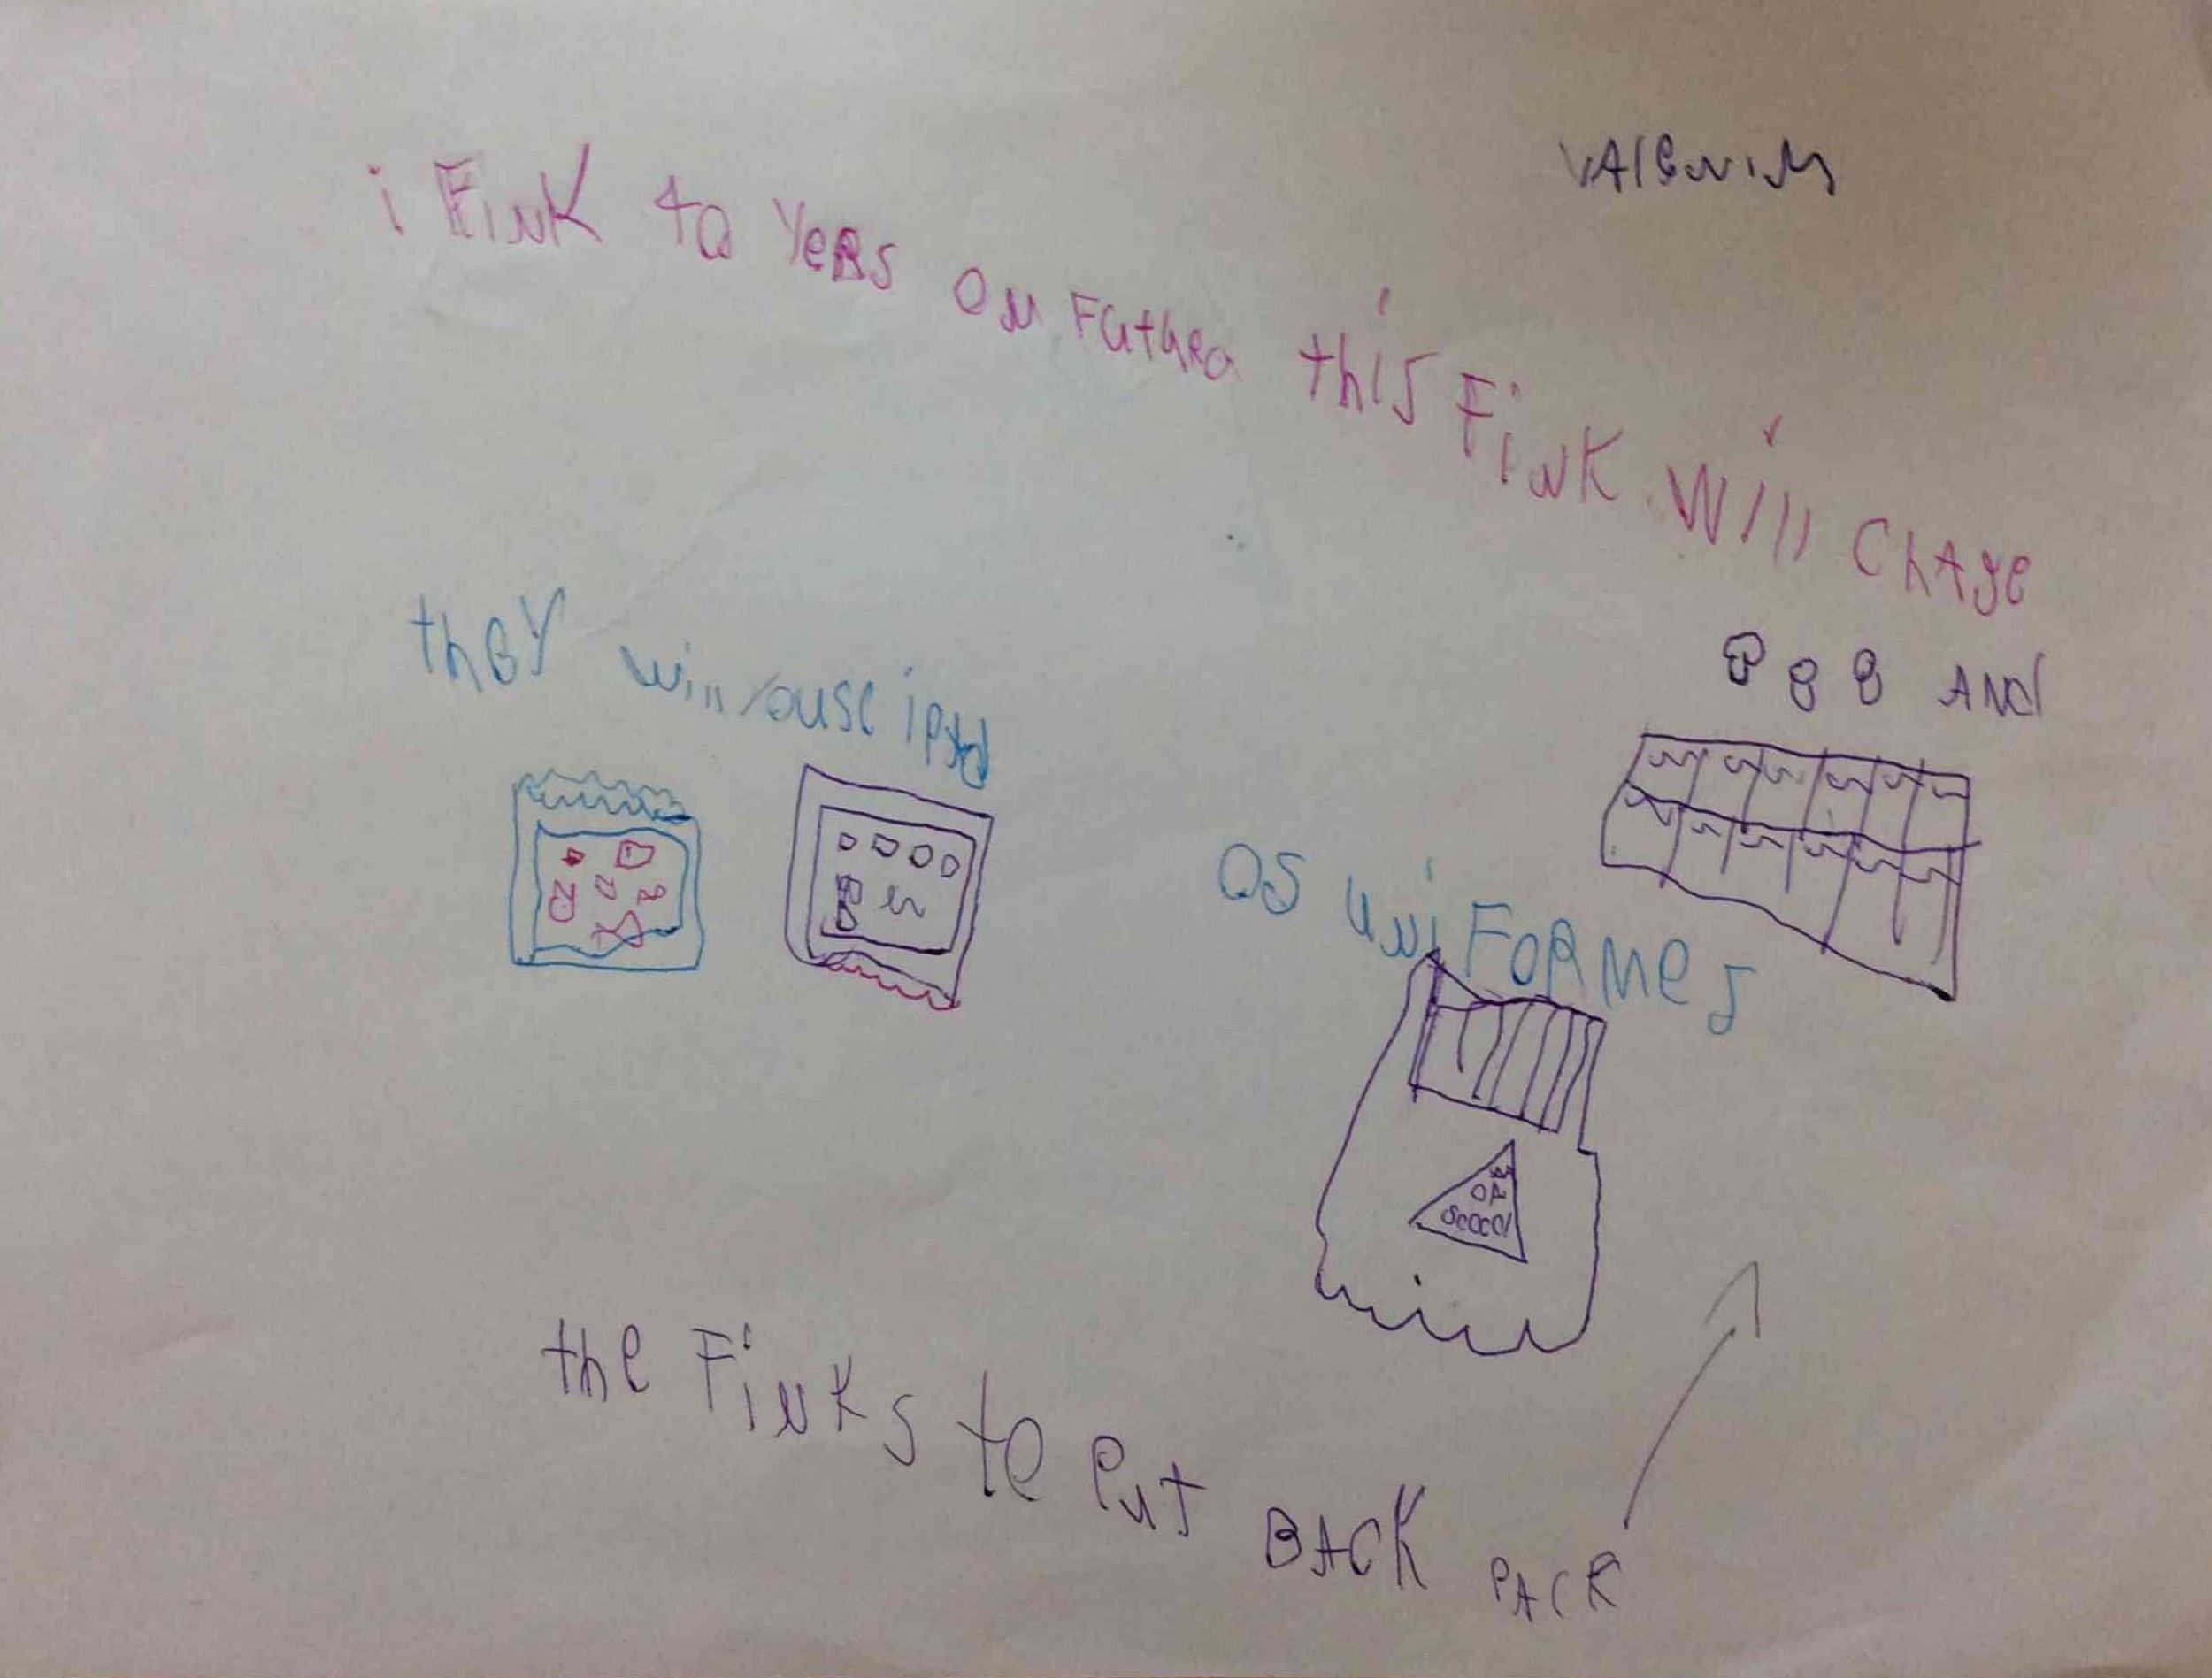 i Fink to YeRs on Futhra this Fink will chAge
they will ouse ipad
AND
OS uniFoRmes
OR
Scocol
the Finks te Put BACK PACK